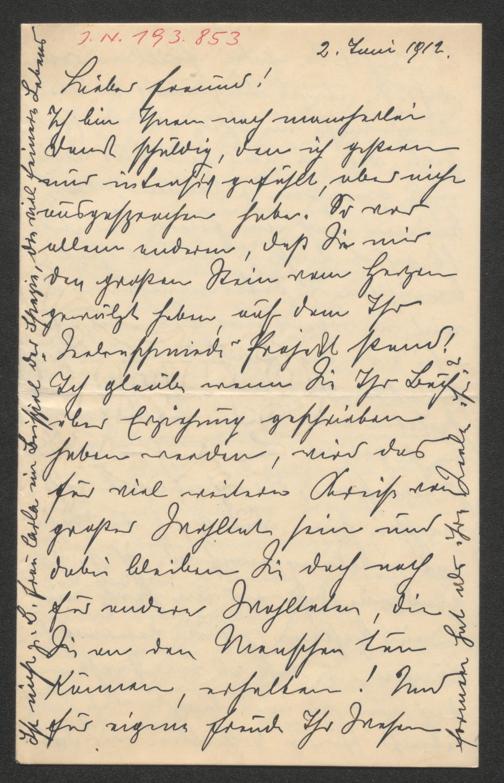 J.N. 193.853
2. Juni 1912.
Lieber Freund!
Ich bin Ihnen noch mancherlei
Dank schuldig, den ich gestern
nur intensiv gefühlt, aber nicht
ausgesprochen habe. So vor
allem anderen, daß Sie mir
den großen Stein vom Herzen
gewälzt haben, auf dem Ihr
"Seelenschmied" Projekt stand!
Ich glaube wenn Sie Ihr Buch
über Erziehung geschrieben
haben werden, wird das
für viel weitere Kreise von
großer Wohltat sein und
dabei bleiben Sie doch noch
für andere Wohltaten, die
Sie an den Menschen tun
können, erhalten! Und
für eigene Freude Ihr Wesen
Ist nicht z.B. Frau Carla ein Beispiel der Spezie, die viel feineres Lebens
formen hat als ihre Seele ist?